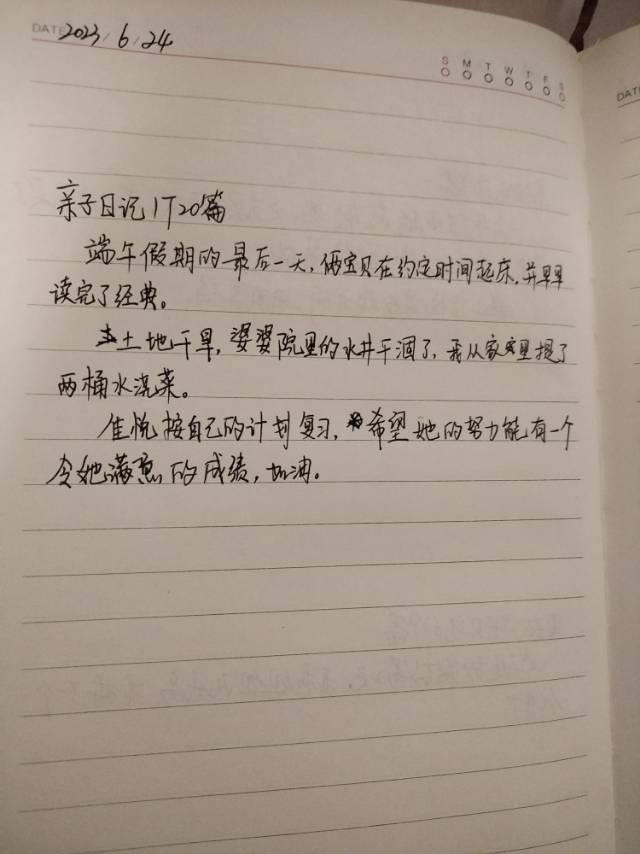 DATE 2023/6/24
S M T W T F S
DATE
亲子日记1720篇
端午假期的最后一天，俩宝贝在约定时间起床，并早早
读完了经典。
土地干旱，婆婆院里的水井干涸了，我从家里提了
两桶水浇菜。
佳悦按自己的计划复习，希望她的努力能有一个
令她满意的成绩，加油。